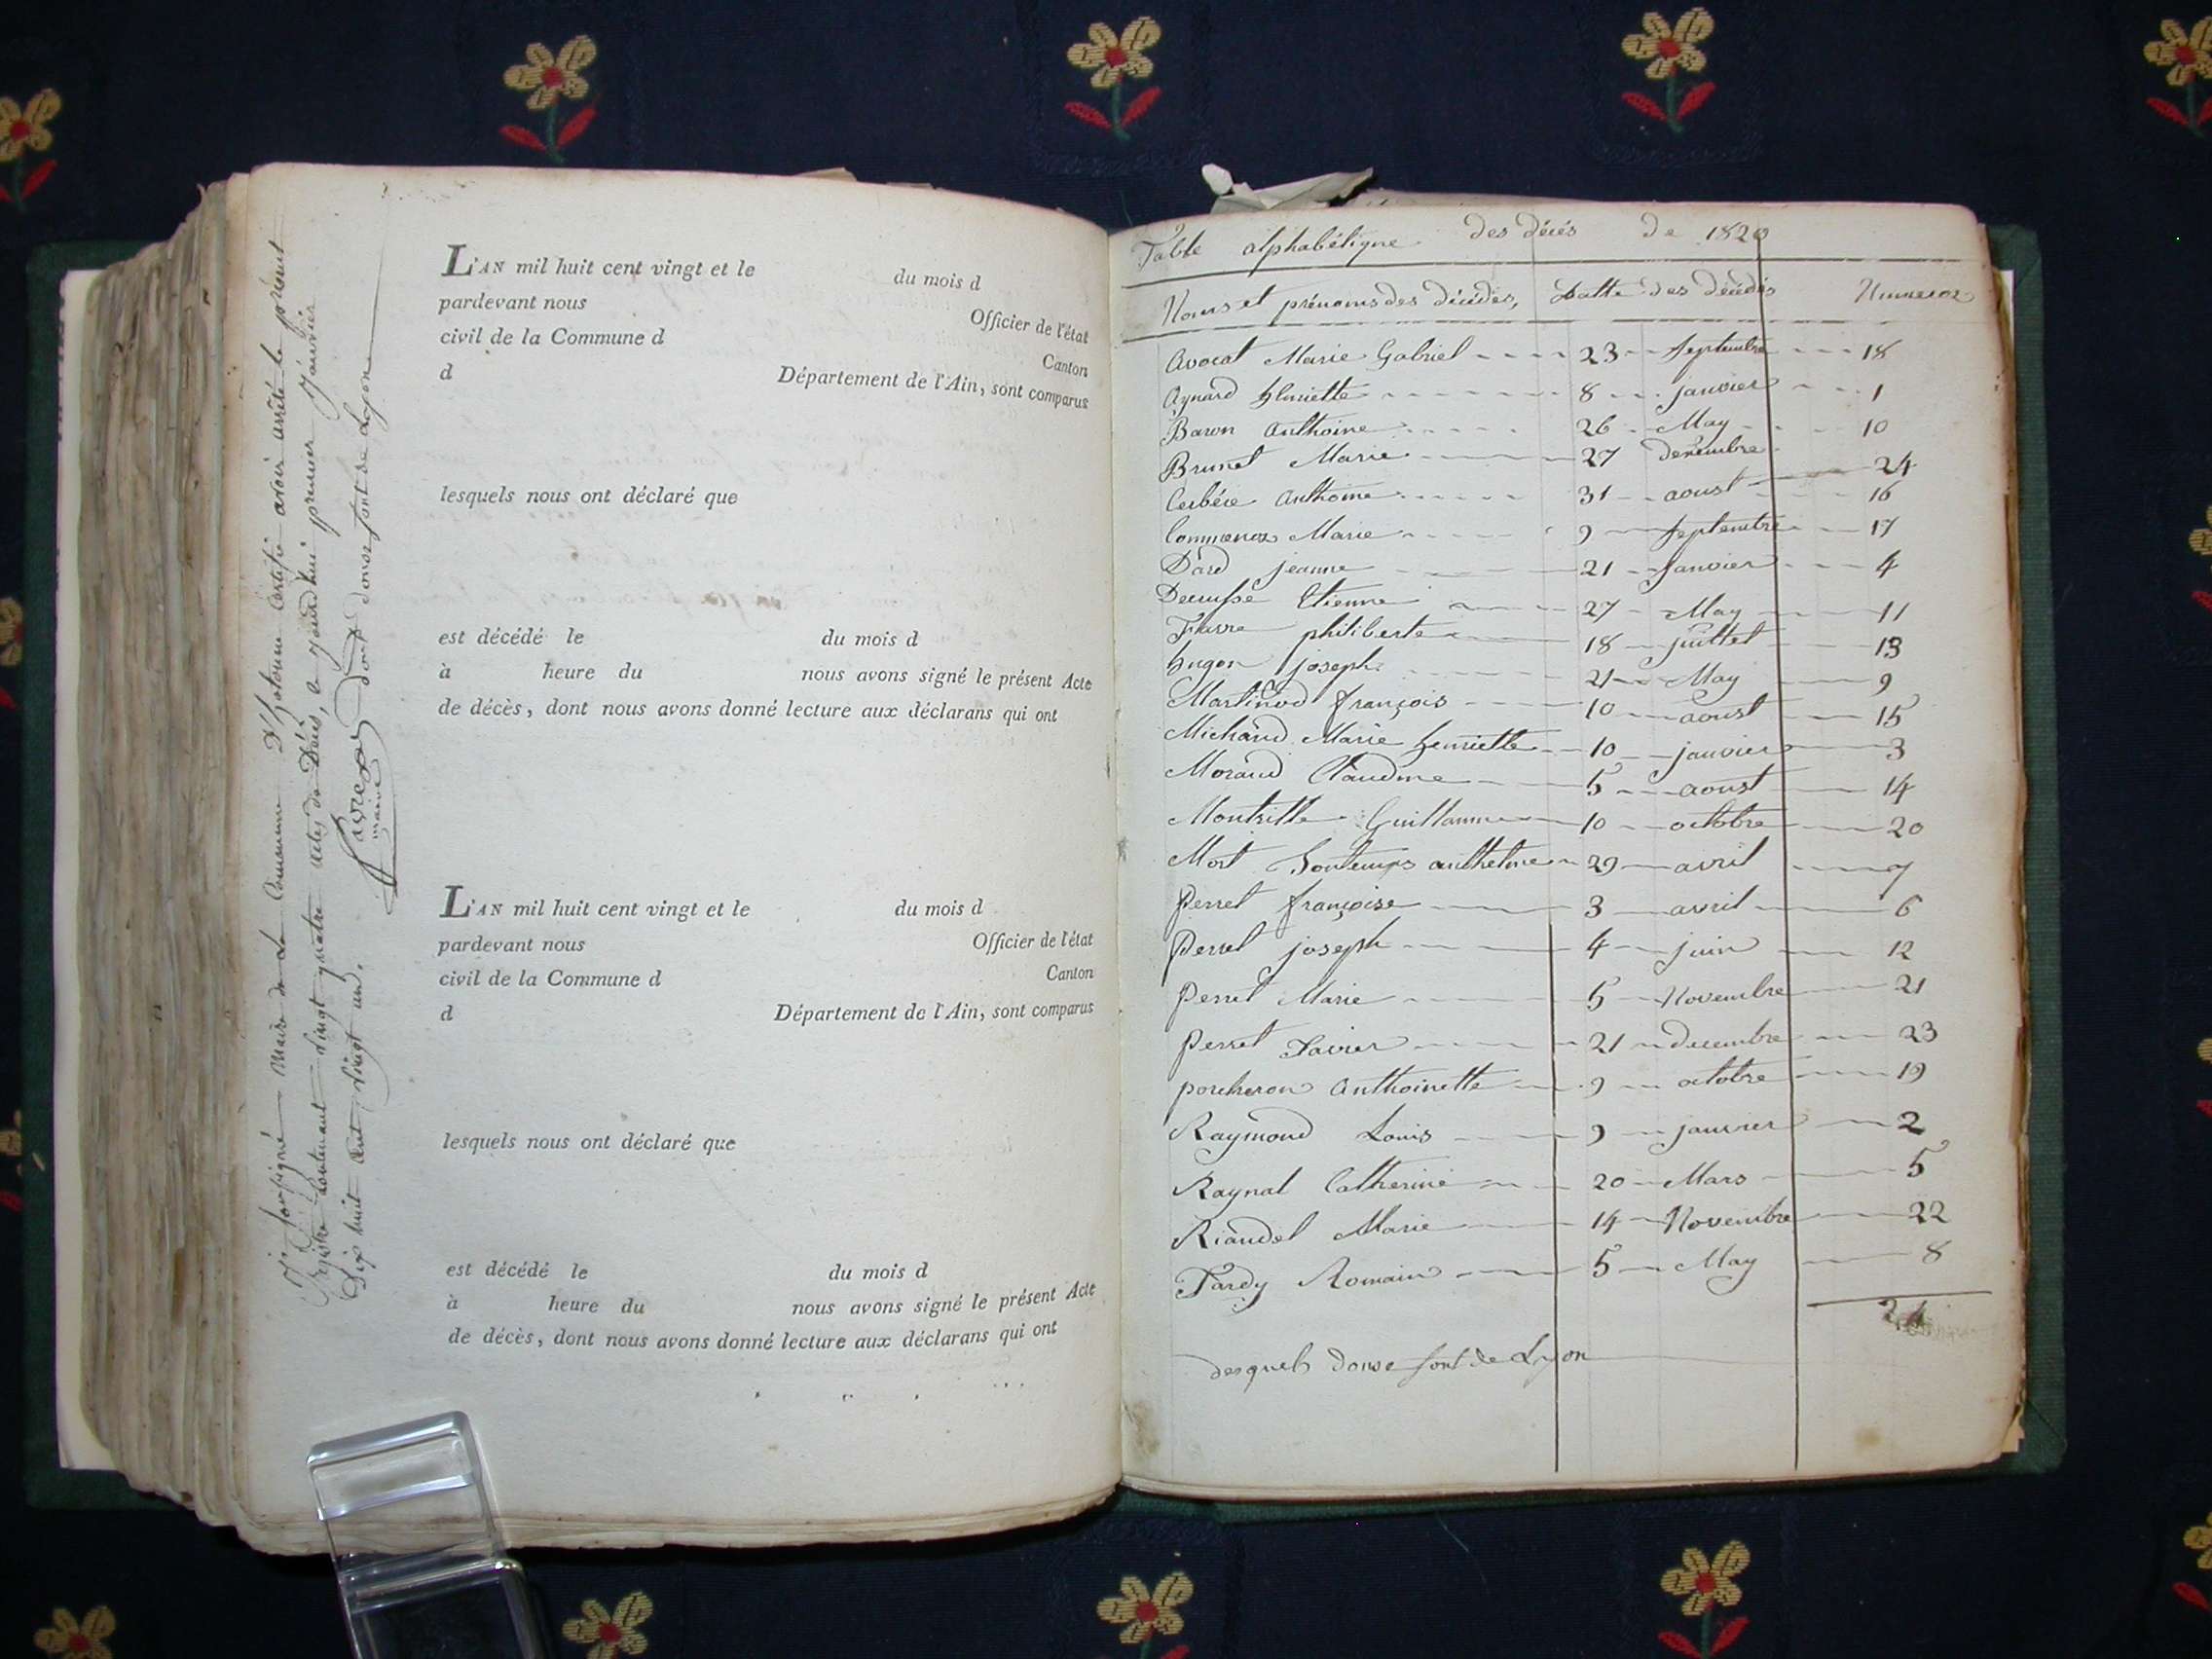 Je soussigné maire de la Commune D'hotonne Certifie avoir arrêté le present
Registre Contenant vingt quatre actes de Décés, a jourd'hui premier Janvier
Dix huit cent vingt un. dont douse sont de Lyon
favre
maire
L'AN mil huit cent vingt et le du mois d
pardevant nous Officier de l'état
civil de la Commune d Canton
d Département de l'Ain, sont comparus
lesquels nous ont déclaré que
est décédé le du mois d
à heure du nous avons signé le présent Acte
de décès, dont nous avons donné lecture aux déclarans qui ont
L'AN mil huit cent vingt et le du mois d
pardevant nous Officier de l'état
civil de la Commune d Canton
d Département de l'Ain, sont comparus
lesquels nous ont déclaré que
est décédé le du mois d
à heure du nous avons signé le présent Acte
de décès, dont nous avons donné lecture aux déclarans qui ont
Table alphabétique des décés de 1820
Noms et prénoms des décédés, Datte des décédés Numeros
Avocat Marie Gabriel 23 septembre 18
Aynard henriette 8 janvier 1
Baron Anthoine 26 May 10
Brunet Marie 27 décembre 24
Cerbére Anthoine 31 aoust 16
Marie 9 septembre 17
Dard jeanne 21 janvier 4
Etienne 27 May 11
Favre philiberte 18 juillet 13
hugon joseph 21 May 9
Martinod françois 10 aoust 15
Michaud Marie henriette 10 janvier 3
Morand Claudine 5 aoust 14
Montrille Guillaume 10 octobre 20
Mort bontemps anthelme 29 avril 7
Perret françoise 3 avril 6
Perret joseph 4 juin 12
Perret Marie 5 Novembre 21
Perret Xavier 21 decembre 23
porcheron Anthoinette 9 octobre 19
Raymond Louis 9 janvier 2
Raynal Catherine 20 Mars 5
Riandel Marie 14 Novembre 22
Tardy Romain 5 May 8
24
desquels douse sont de Lyon